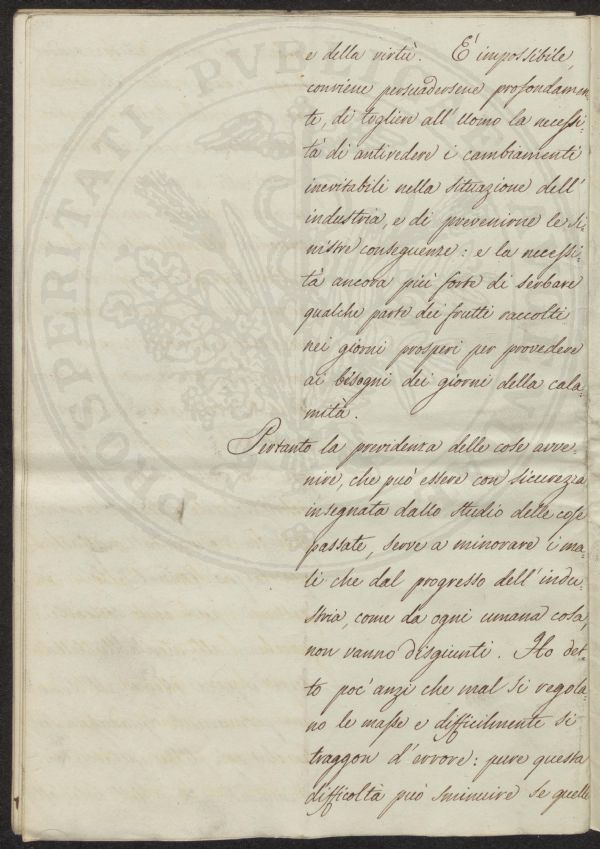 e della virtù. É impossibile,
conviene persuadersene profondamen
te, di togliere all' Uomo la necessi=
tà di antivedere i cambiamenti
inevitabili nella situazione dell'
industria, e di prevenirne le si=
nistre conseguenze: e la necessi=
tà ancora più forte di serbare
qualche parte dei frutti raccolti
nei giorni prosperi per provedere
ai bisogni dei giorni della cala=
mità.
Pertanto la previdenza delle cose avve=
nire, che può essere con sicurezza
insegnata dallo studio delle cose
passate, serve a minorare i ma=
li che dal progresso dell' indu=
stria, come da ogni umana cosa,
non vanno disgiunti. Ho det=
to poc' anzi che mal si regola=
no le masse e difficilmente si
traggon d' errore: pure questa
difficoltà può sminuire se quelle
PROSPERITATI PVBLIC